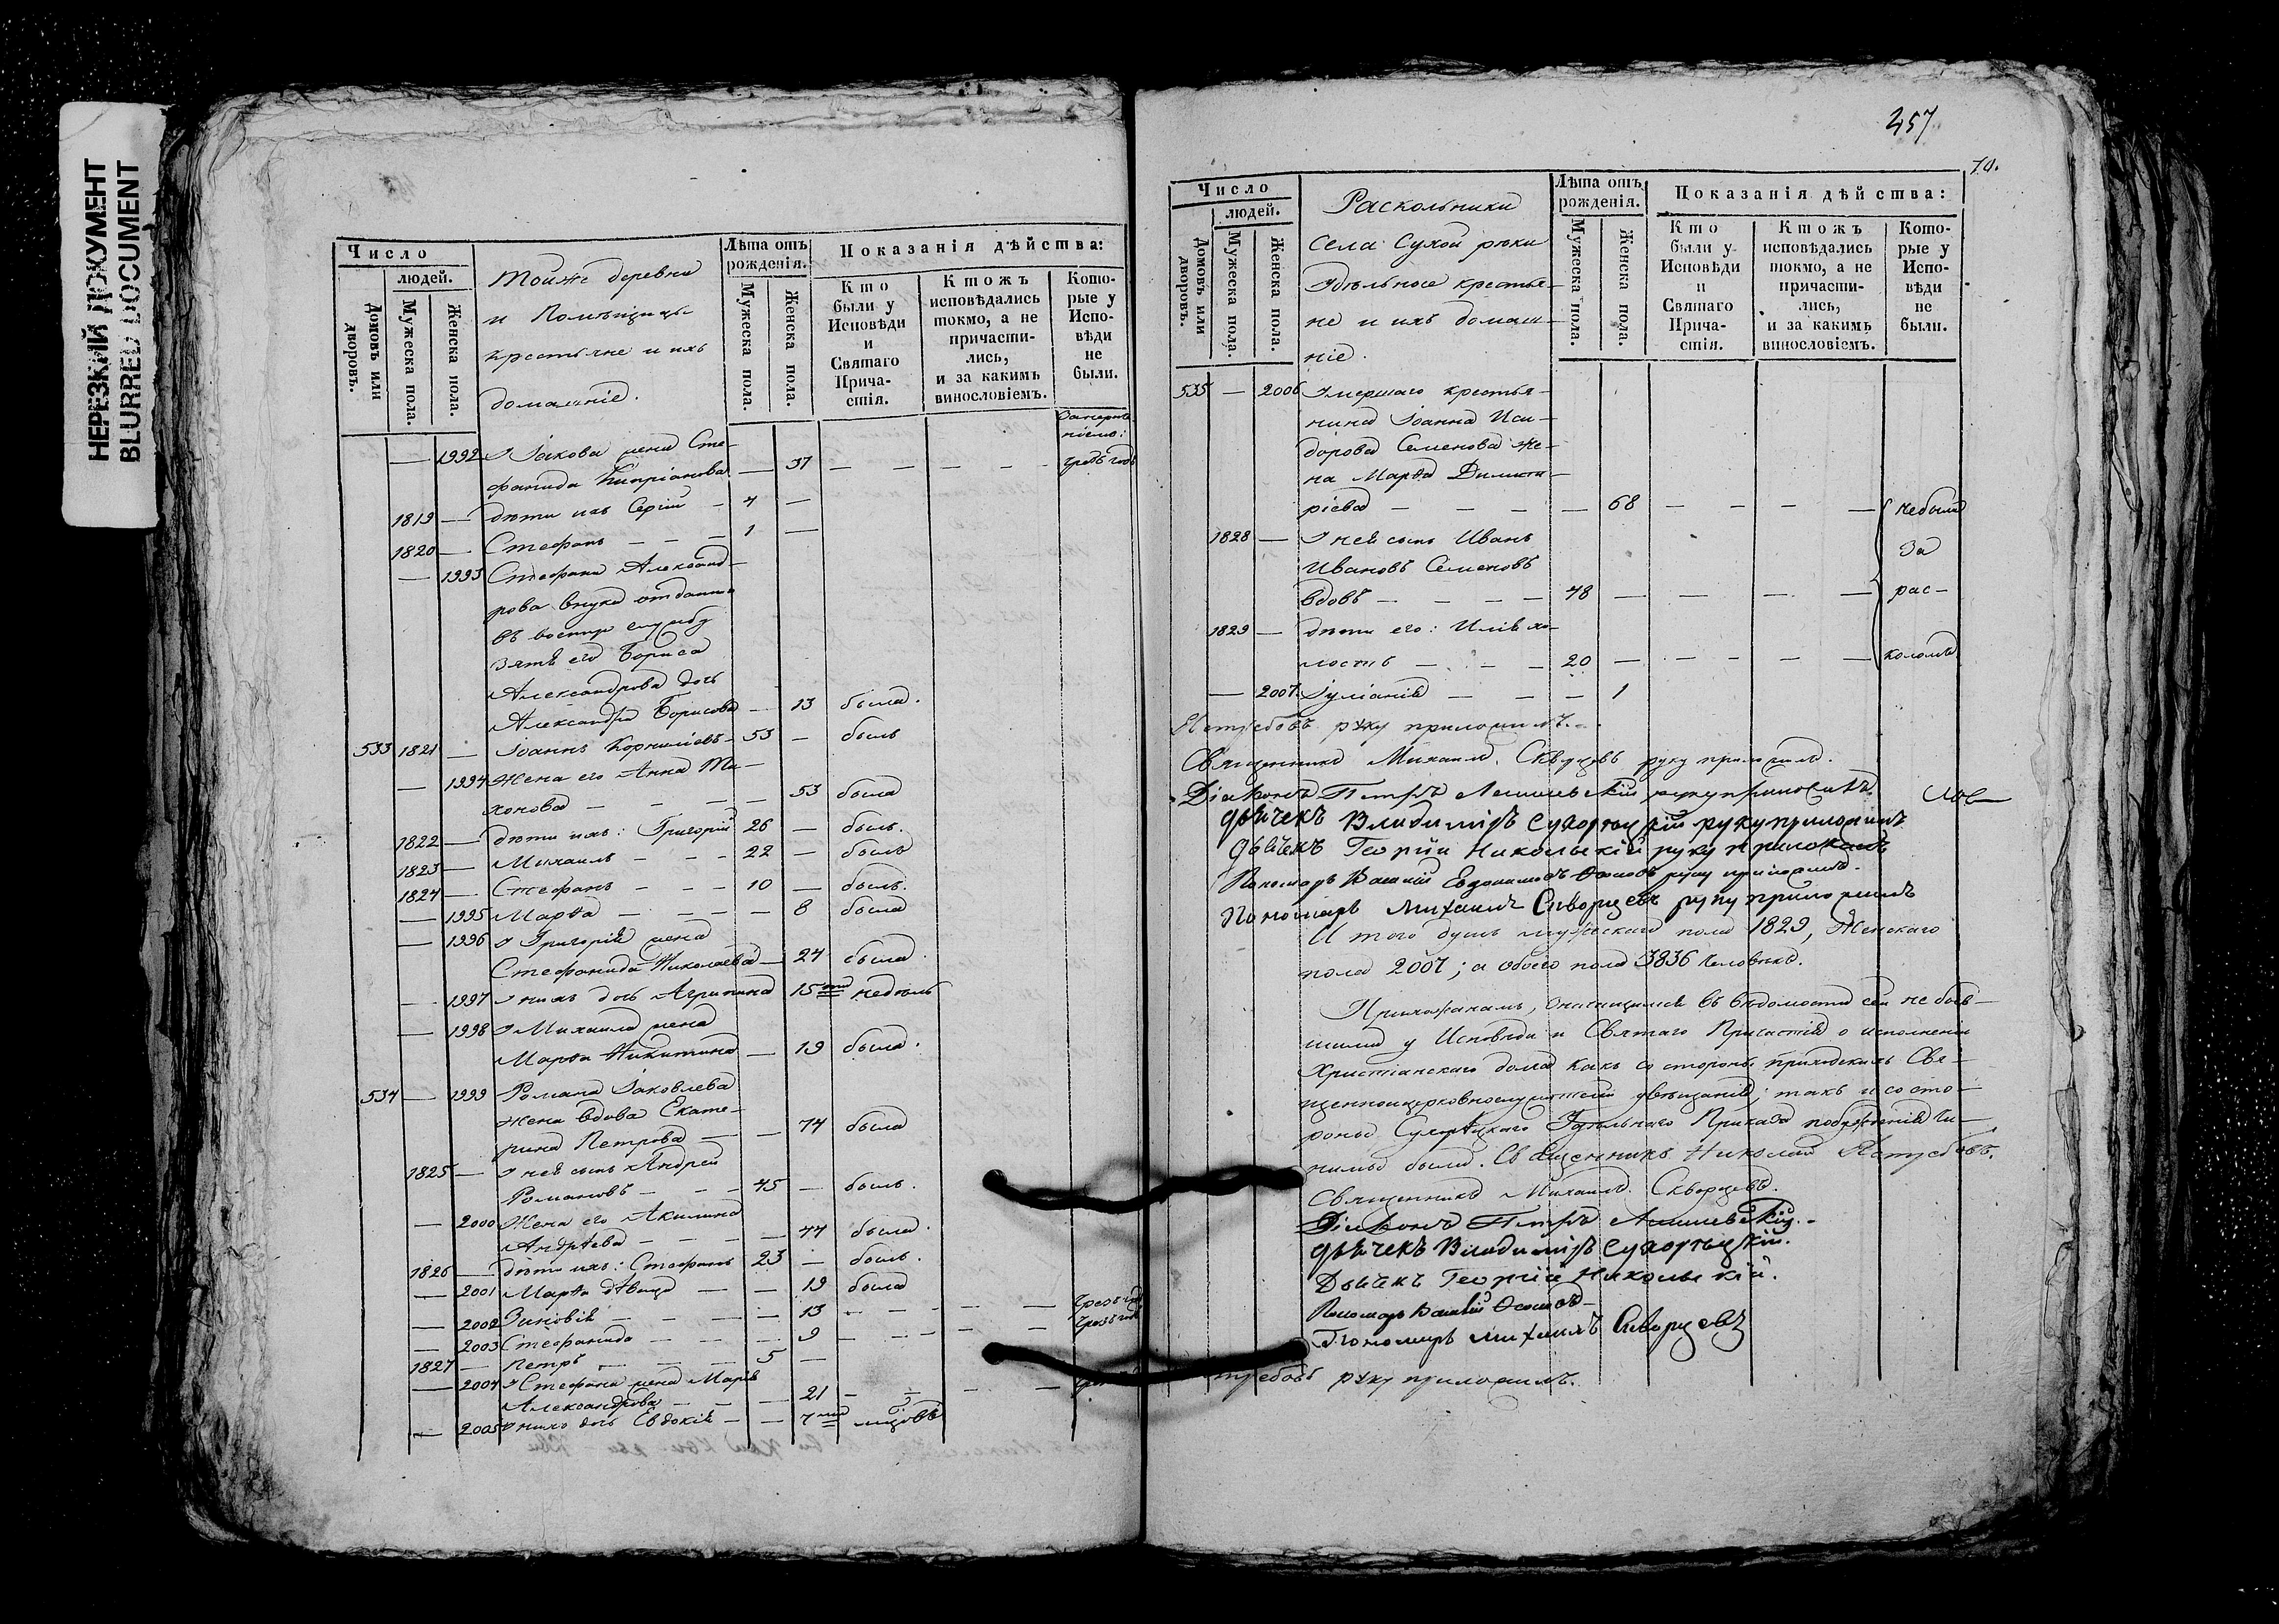 НЕРЕЗКИЙ ДОКУМЕНТ
BLURRED DOCUMENT
Число
людей.
Домовъ или дворовъ.
Мужеска пола.
Женска пола.
Тойже деревни
и Помѣщицы
крестьяне и ихъ
домашніе.
Лѣта отъ рожденія.
Мужеска пола.
Женска пола.
Показанія дѣйства:
Кто были у Исповѣди и Святаго Прича- стія.
Ктожъ исповѣдались токмо, а не причасти- лись, и за какимъ винословіемъ.
Кото- рые у Испо- вѣди не были.
— 1992 У Іакова жена Сте-
фанида Кипріанова — 37 — — — — —
1819 — дѣти ихъ Сергій — 4 —
1820 — Стефанъ — — — 1 —
— 1993 Стефана Александ-
рова внука отданна
въ военну службу
зятя его Бориса
Александрова дочь
Александра Борисова — 13 была.
533 1821 — Іоаннъ Корниліевъ — 53 — былъ
— 1994 Жена его Анна Ти-
хонова — — — — 53 была
1822 — дѣти ихъ: Григорій 26 — былъ.
1823 — Михаилъ — — — 22 — былъ
1824 — Стефанъ — — — 10 — былъ.
— 1995 Марѳа — — — — 8 была
— 1996 У Григорія жена
Стефанида Николаева — 24 была.
— 1997 У нихъ дочь Агрипина 15ти недѣль
— 1998 У Михаила жена
Марѳа Никитина — 19 была.
534 — 1999 Романа Іаковлева
жена вдова Екате-
рина Петрова — — 74 была
1825 — У нея сынъ Андрей
Романовъ — — — 45 — былъ.
— 2000 Жена его Акилина
Андрѣева — — — — 44 была.
1826 — дѣти ихъ: Стефанъ 23 — былъ.
— 2001 Марѳа дѣвица — — 19 была
— 2002 Зиновія — — — — 13 — — — — —
— 2003 Стефанида — — — 9 — — — — —
1827 — Петръ — — — 5 —
— 2004 У Стефана жена Марія
Александрова — — — 21 — — — —
— 2005 У нихъ дочь Евдокія — — 7ми мѣсяцовъ
457
70.
Число
людей.
Домовъ или дворовъ.
Мужеска пола.
Женска пола.
Раскольники
Села Сухой рѣки
Удѣльные крестья-
не и ихъ домаш-
ніе.
Лѣта отъ рожденія.
Мужеска пола.
Женска пола.
Показанія дѣйства:
Кто были у Исповѣди и Святаго Прича- стія.
Ктожъ исповѣдались токмо, а не причасти- лись, и за какимъ винословіемъ.
Кото- рые у Испо- вѣди не были.
535 — 2006 Умершаго крестья-
нина Іоанна Иси-
дорова Семенова же-
на Марѳа Димит-
ріева — — — — 68 — — — — небыли
1828 — У нея сынъ Иванъ за
Ивановъ Семеновъ
вдовъ — — — — 48 — — — — рас-
1829 — дѣти его: Илія хо-
лостъ — — — 20 — — — — — коломъ
— 2007. Іуліанія — — — 1
руку приложилъ.
Священникъ Михаилъ Скворцовъ руку приложилъ.
Діаконъ Петръ руку приложилъ.
Дьячекъ Владиміръ руку приложилъ
Дьячекъ Георгій Никольскій руку приложилъ
Пономарь руку приложилъ.
Пономарь Михаилъ Скворцевъ руку приложилъ
И того душъ мужескаго пола 1829, Женскаго
пола 2007; а обоего пола 3836 человѣкъ.
Прихожанамъ, значущимся въ вѣдомости сей не быв-
шими у Исповѣди и Святаго Причастія о исполненіи
Христіанскаго долга какъ со стороны приходскихъ Свя-
щенноцерковнослужителей увѣщанія; такъ и со сто-
роны Удѣльнаго Приказа побужденія чи-
нимы были. Священникъ Николай
Священникъ Михаилъ Скворцевъ.
Діаконъ Петръ
Дьячекъ Владиміръ
Дьячекъ Георгій Никольскій.
Пономарь
Пономарь Михаилъ Скворцевъ
руку приложилъ.